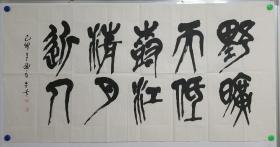 野曠
天低
樹江
清月
近人
己卯